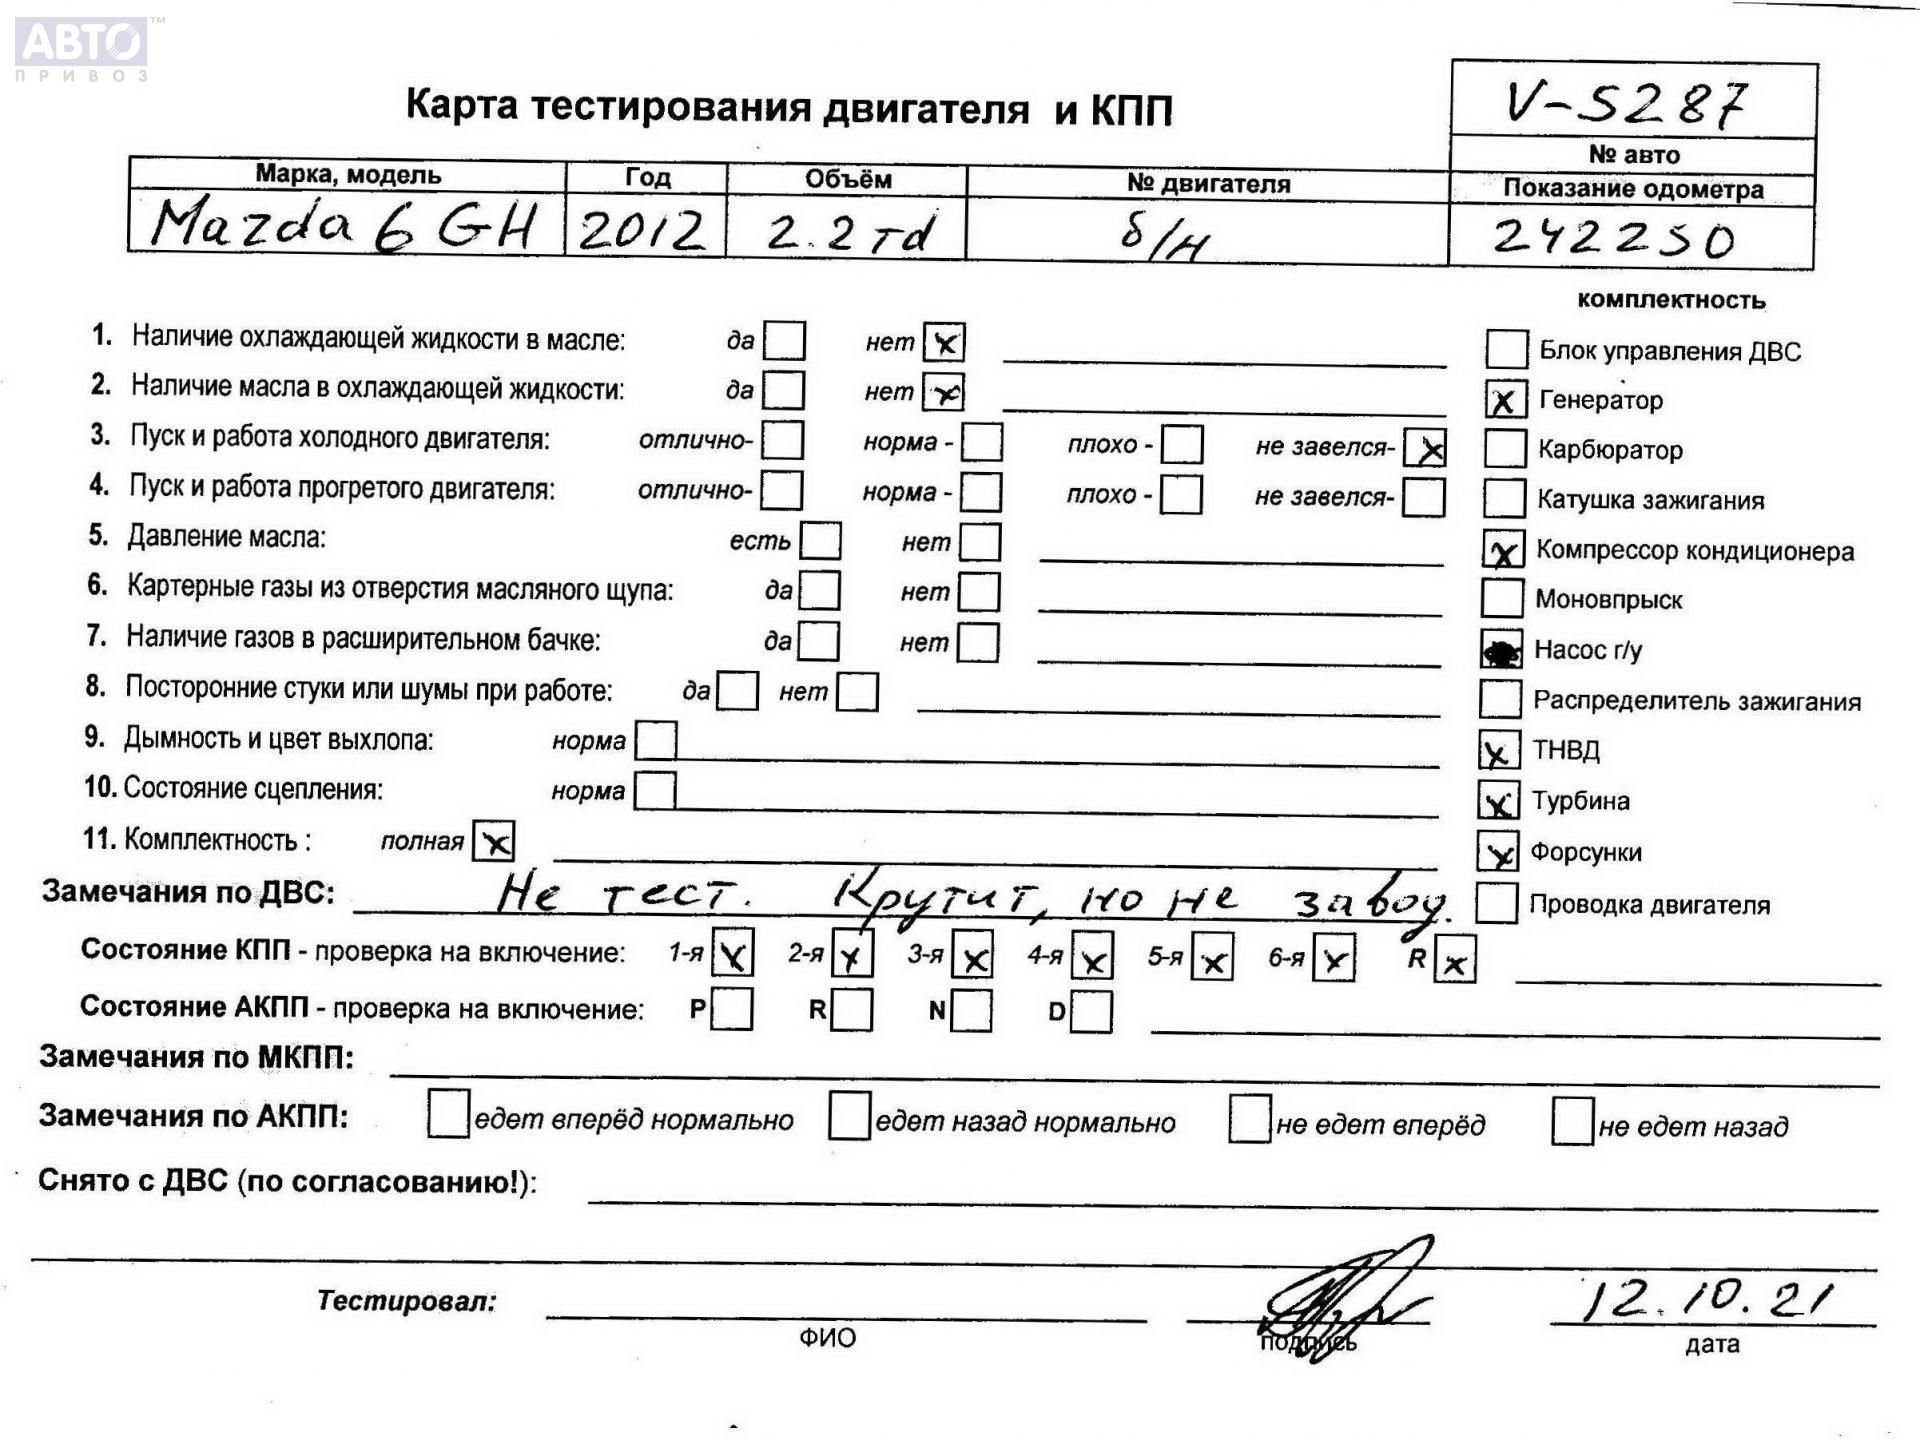 АВТО™
ПРИВОЗ
V-5287
Карта тестирования двигателя и КПП
№ авто
Марка, модель Год Объём № двигателя Показание одометра
Mazda 6 GH 2012 2.2 тd б/н 242250
комплектность
1. Наличие охлаждающей жидкости в масле: да нет x Блок управления ДВС
2. Наличие масла в охлаждающей жидкости: да нет x x Генератор
3. Пуск и работа холодного двигателя: отлично- норма - плохо - не завелся- x Карбюратор
4. Пуск и работа прогретого двигателя: отлично- норма - плохо - не завелся- Катушка зажигания
5. Давление масла: есть нет x Компрессор кондиционера
6. Картерные газы из отверстия масляного щупа: да нет Моновпрыск
7. Наличие газов в расширительном бачке: да нет Насос г/у
8. Посторонние стуки или шумы при работе: да нет Распределитель зажигания
9. Дымность и цвет выхлопа: норма x ТНВД
10. Состояние сцепления: норма x Турбина
11. Комплектность : полная x x Форсунки
Замечания по ДВС: Не тест. Крутит, но не завод. Проводка двигателя
Состояние КПП - проверка на включение: 1-я x 2-я x 3-я x 4-я x 5-я x 6-я x R x
Состояние АКПП - проверка на включение: P R N D
Замечания по МКПП:
Замечания по АКПП: едет вперёд нормально едет назад нормально не едет вперёд не едет назад
Снято с ДВС (по согласованию!):
Тестировал: 12.10.21
ФИО подпись дата